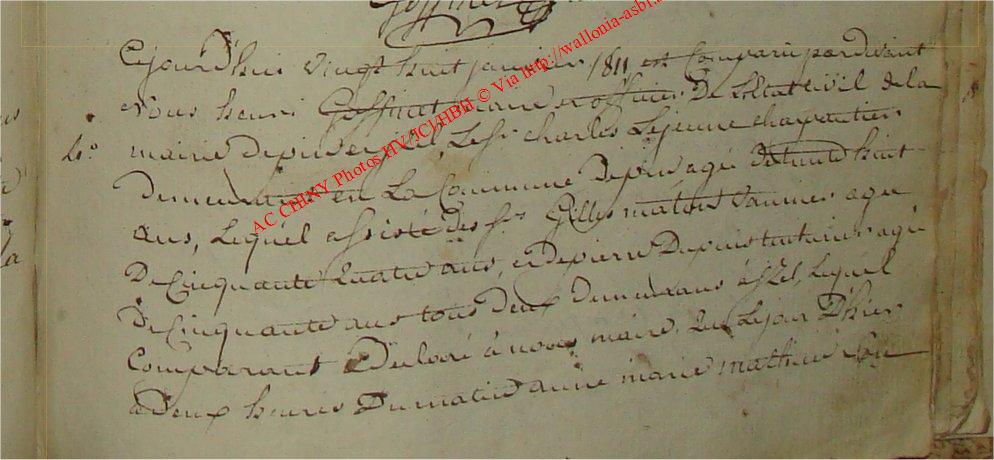 Goffinet
Cejourd'hui vingt huit janvier 1811 est Comparu pardevant
Nous henri Goffinet maire et officier De L'Etat civil de la
4.° mairie depin en Izel, Le Sr. charles Lejeune charpentier
Demeurant en La Commune Depin agé de trente huit
ans, Lequel assisté des Srs. Gilles maton vannier agé
De Cinquante quatre ans, et de pierre Depuis tenturier agé
De Cinquante ans tous deux demeurans à Izel, Lequel
Comparant Déclaré à nous maire que Lejour D'hier
à deux heures Dumatin anne marie mathieu son
AC CHINY Photos HV/JCl/HBH © Via http://wallonia-asbl.